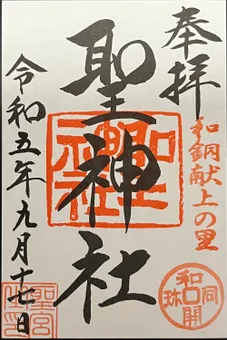 奉拝
和銅献上の里
聖神社
令和五年九月十七日
和同開珎